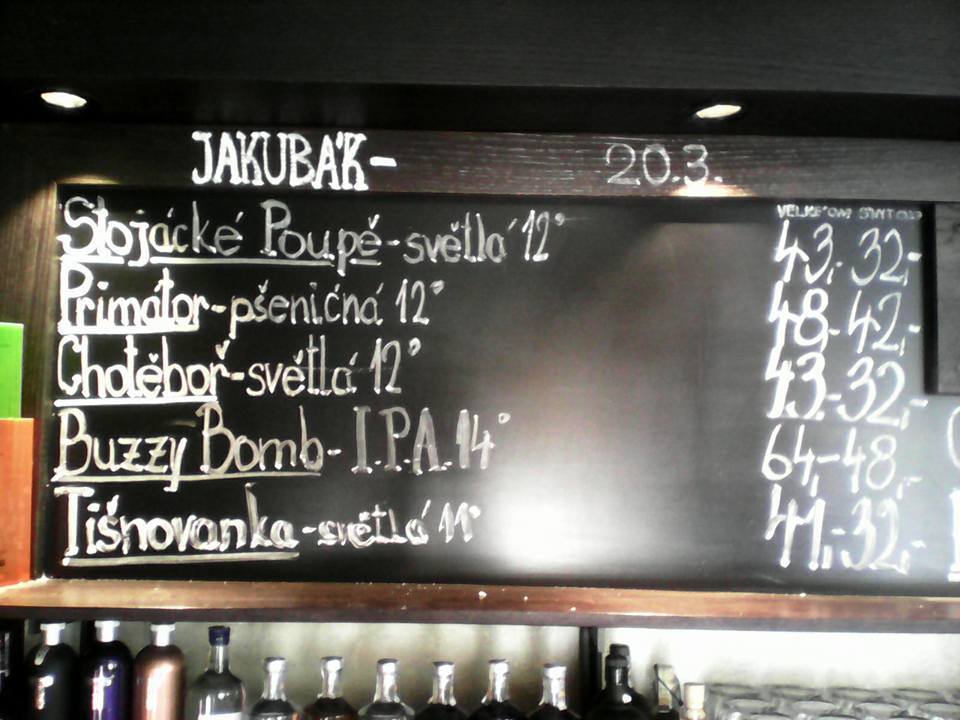 JAKUBÁK- 20.3.
Stojácké Poupě-světlá 12° 43,- 32,-
Primátor-pšeničná 12° 48,- 42,-
Chotěboř-světlá 12° 43,- 32,-
Buzzy Bomb- I.P.A. 14° 64,- 48,-
Tišnovanka-světlá 11° 41,- 32,-